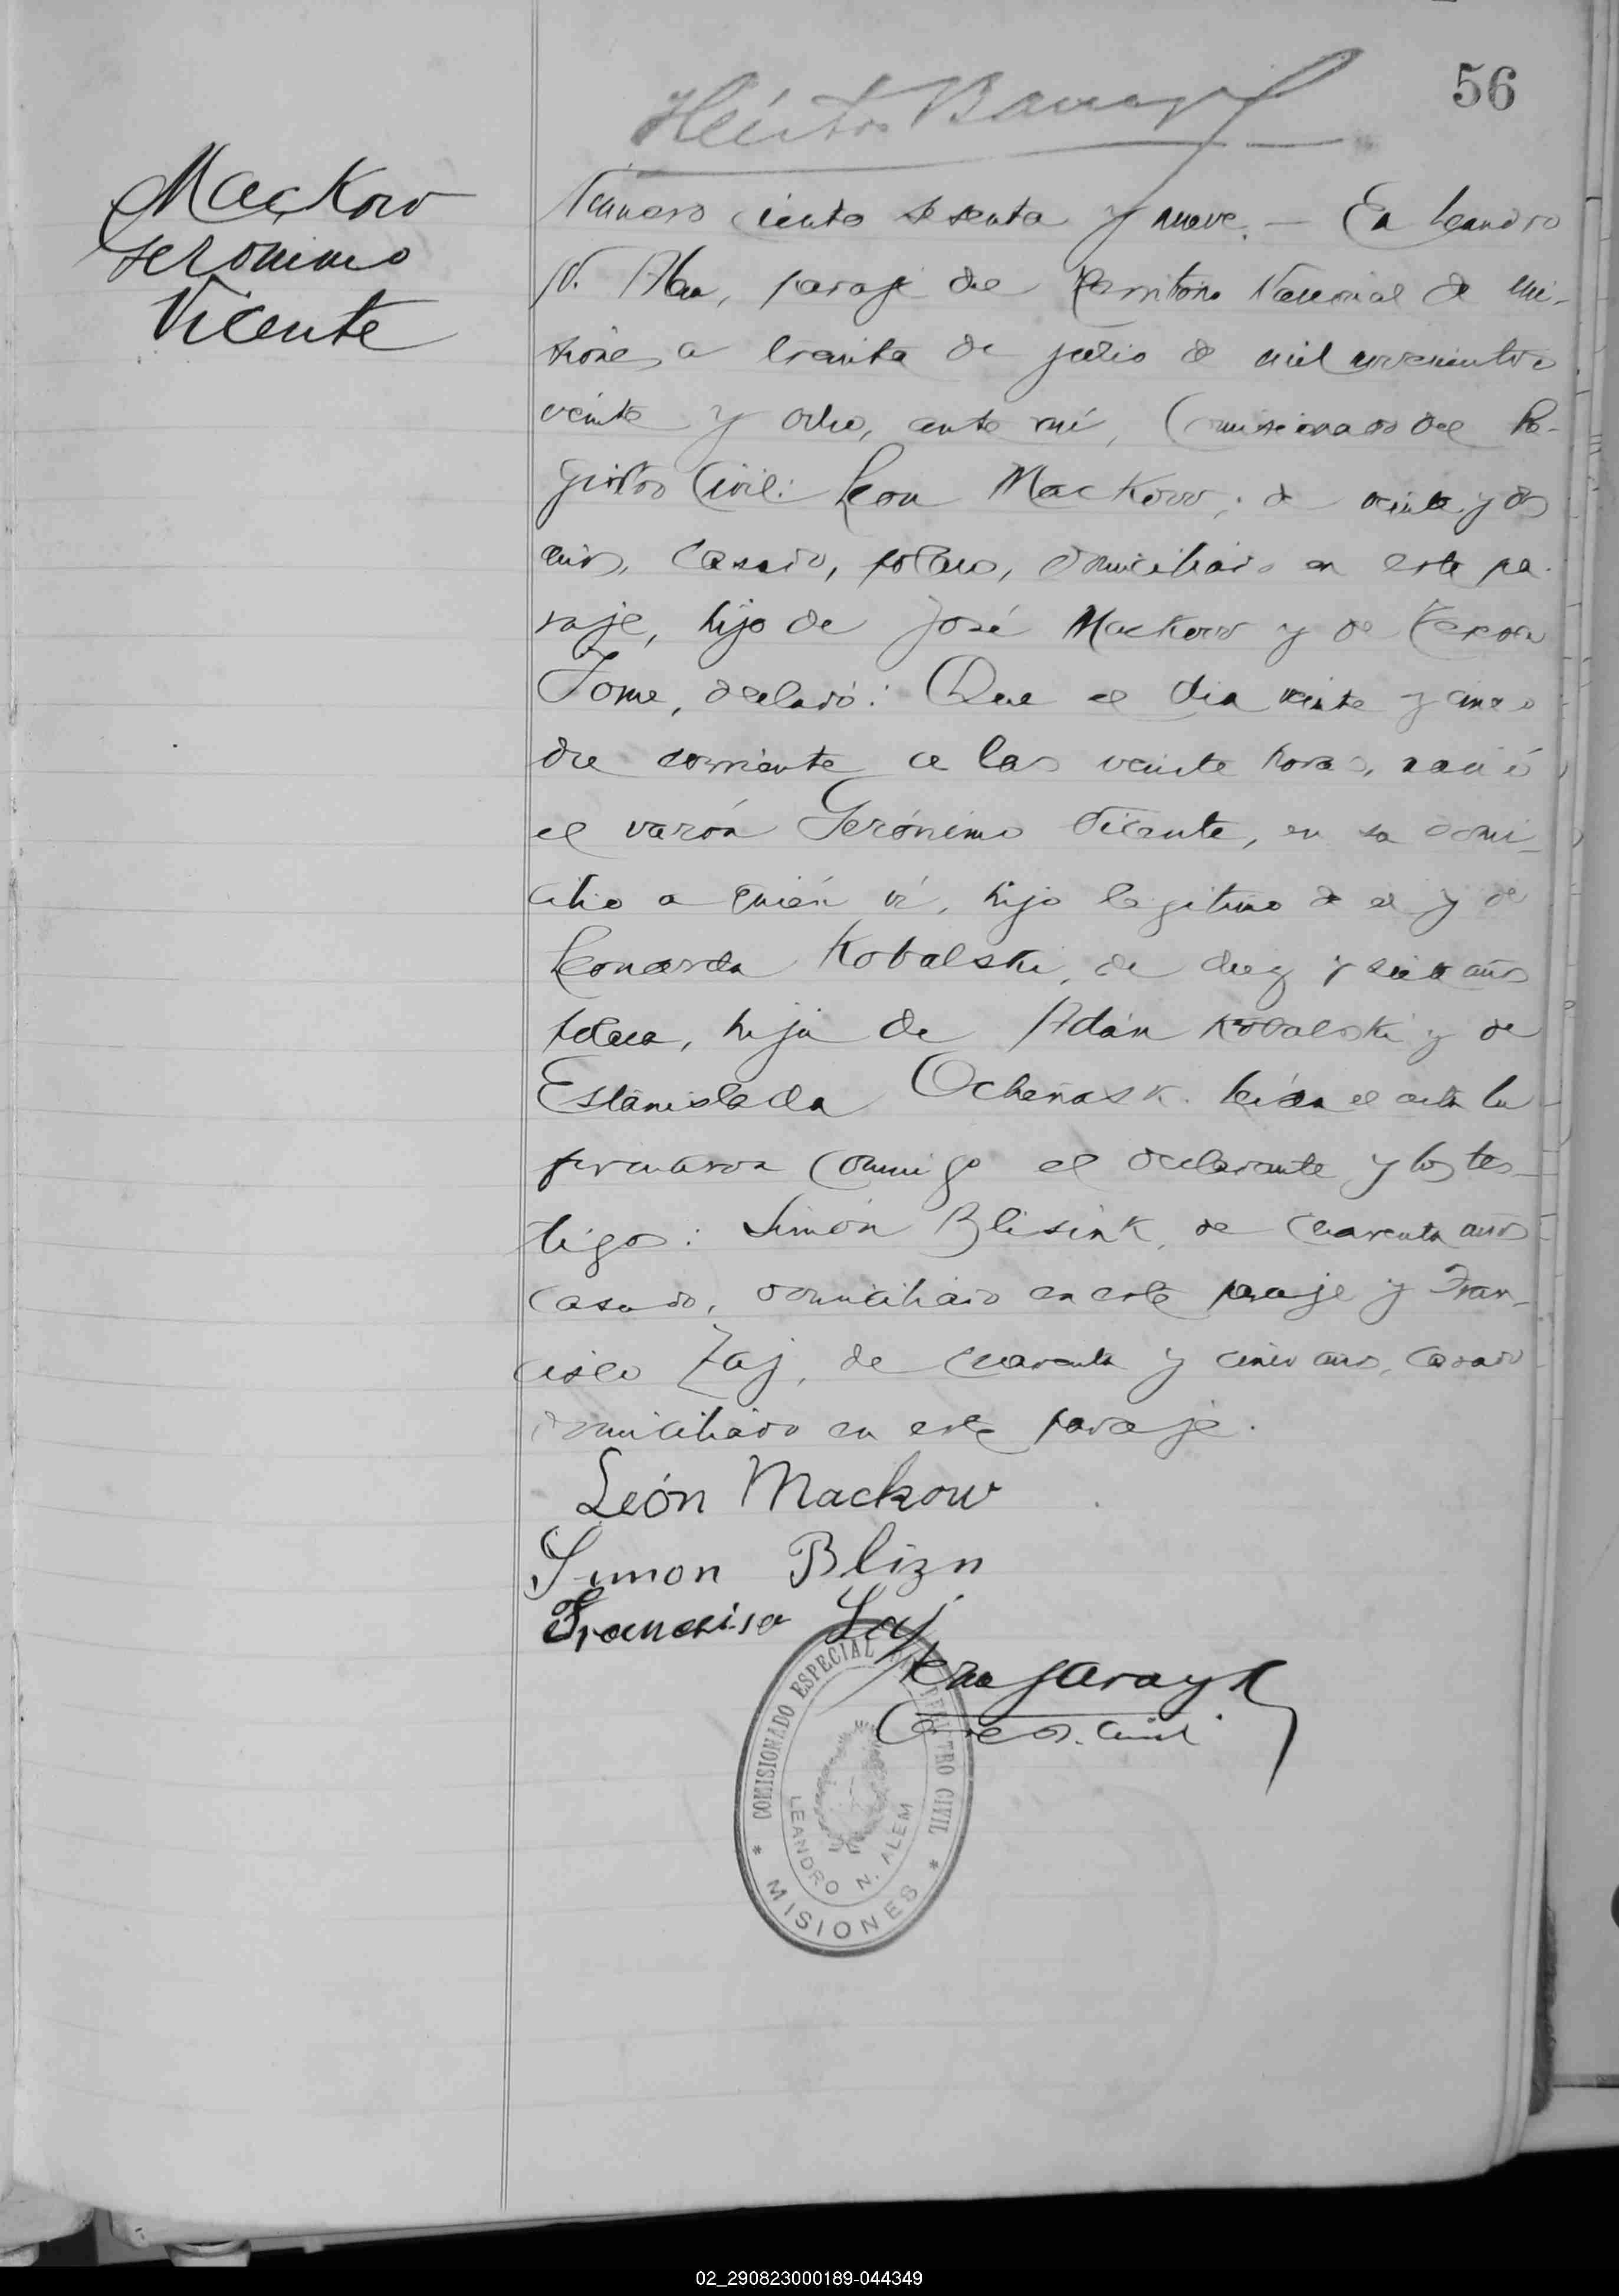 56
Héctor
Mackow
Jeronimo
Vicente
Número ciento sesenta y nueve. — En Leandro
N. Alem, paraje del Territorio Nacional de Mi-
siones, a treinta de julio de mil novecientos
veinte y ocho, ante mí, Comisionado del Re-
gistro Civil: Leon Mackow, de veinte y dos
años, casado, polaco, domiciliado en este pa-
raje, hijo de José Mackow y de
Tome, declaró: Que el dia veinte y cinco
del corriente a las veinte horas, nació
el varón Gerónimo Vicente, en su domi-
cilio a quién ví, hijo legitimo de el y de
Leonarda Kobalski, de diez y siete años
polaca, hija de Adán Kobalski y de
Estanislada Ochenask. Leida el acta la
firmaron conmigo el declarante y los tes-
tigos: Simón Blisink, de cuarenta años
casado, domiciliado en este paraje y Fran-
cisco Zaj, de cuarenta y cinco años, casado
domiciliado en este paraje.
León Mackow
Simon Blizn
Francisco Zaj
COMISIONADO ESPECIAL DEL REGISTRO CIVIL
LEANDRO N. ALEM
* MISIONES *
02_290823000189-044349